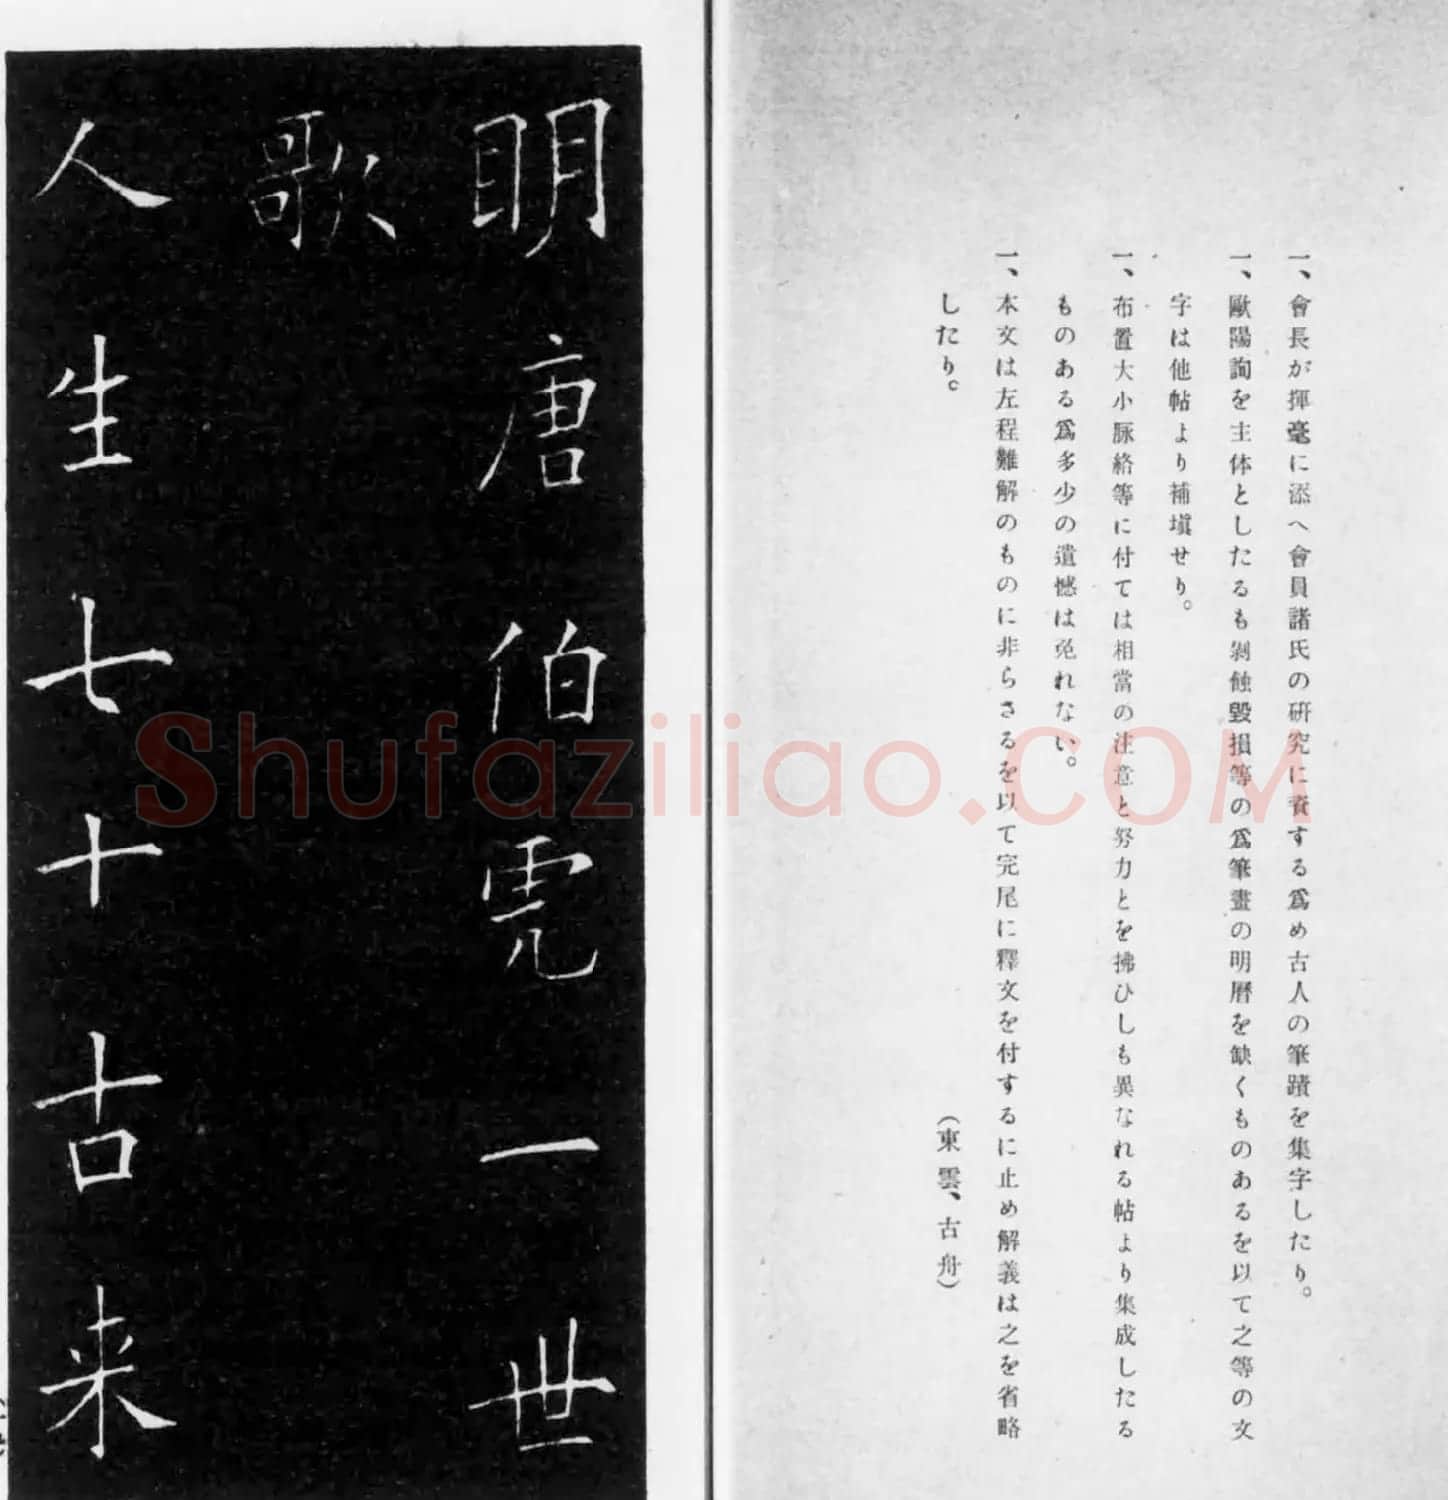 一、會長が揮毫に添へ會員諸氏の研究に資する爲め古人の筆蹟を集字したり。
一、歐陽詢を主体としたるも剝蝕毀損等の爲筆畫の明曆を缺くものあるを以て之等の文
字は他帖より補塡せり。
一、布置大小脈絡等に付ては相當の注意と努力とを拂ひしも異なれる帖より集成したる
ものある爲多少の遺憾は免れない。
一、本文は左程難解のものに非らさるを以て完尾に釋文を付するに止め解義は之を省略
したり。
(東雲、古舟)
明唐伯虎一世
歌
人生七十古来
Shufaziliao.COM